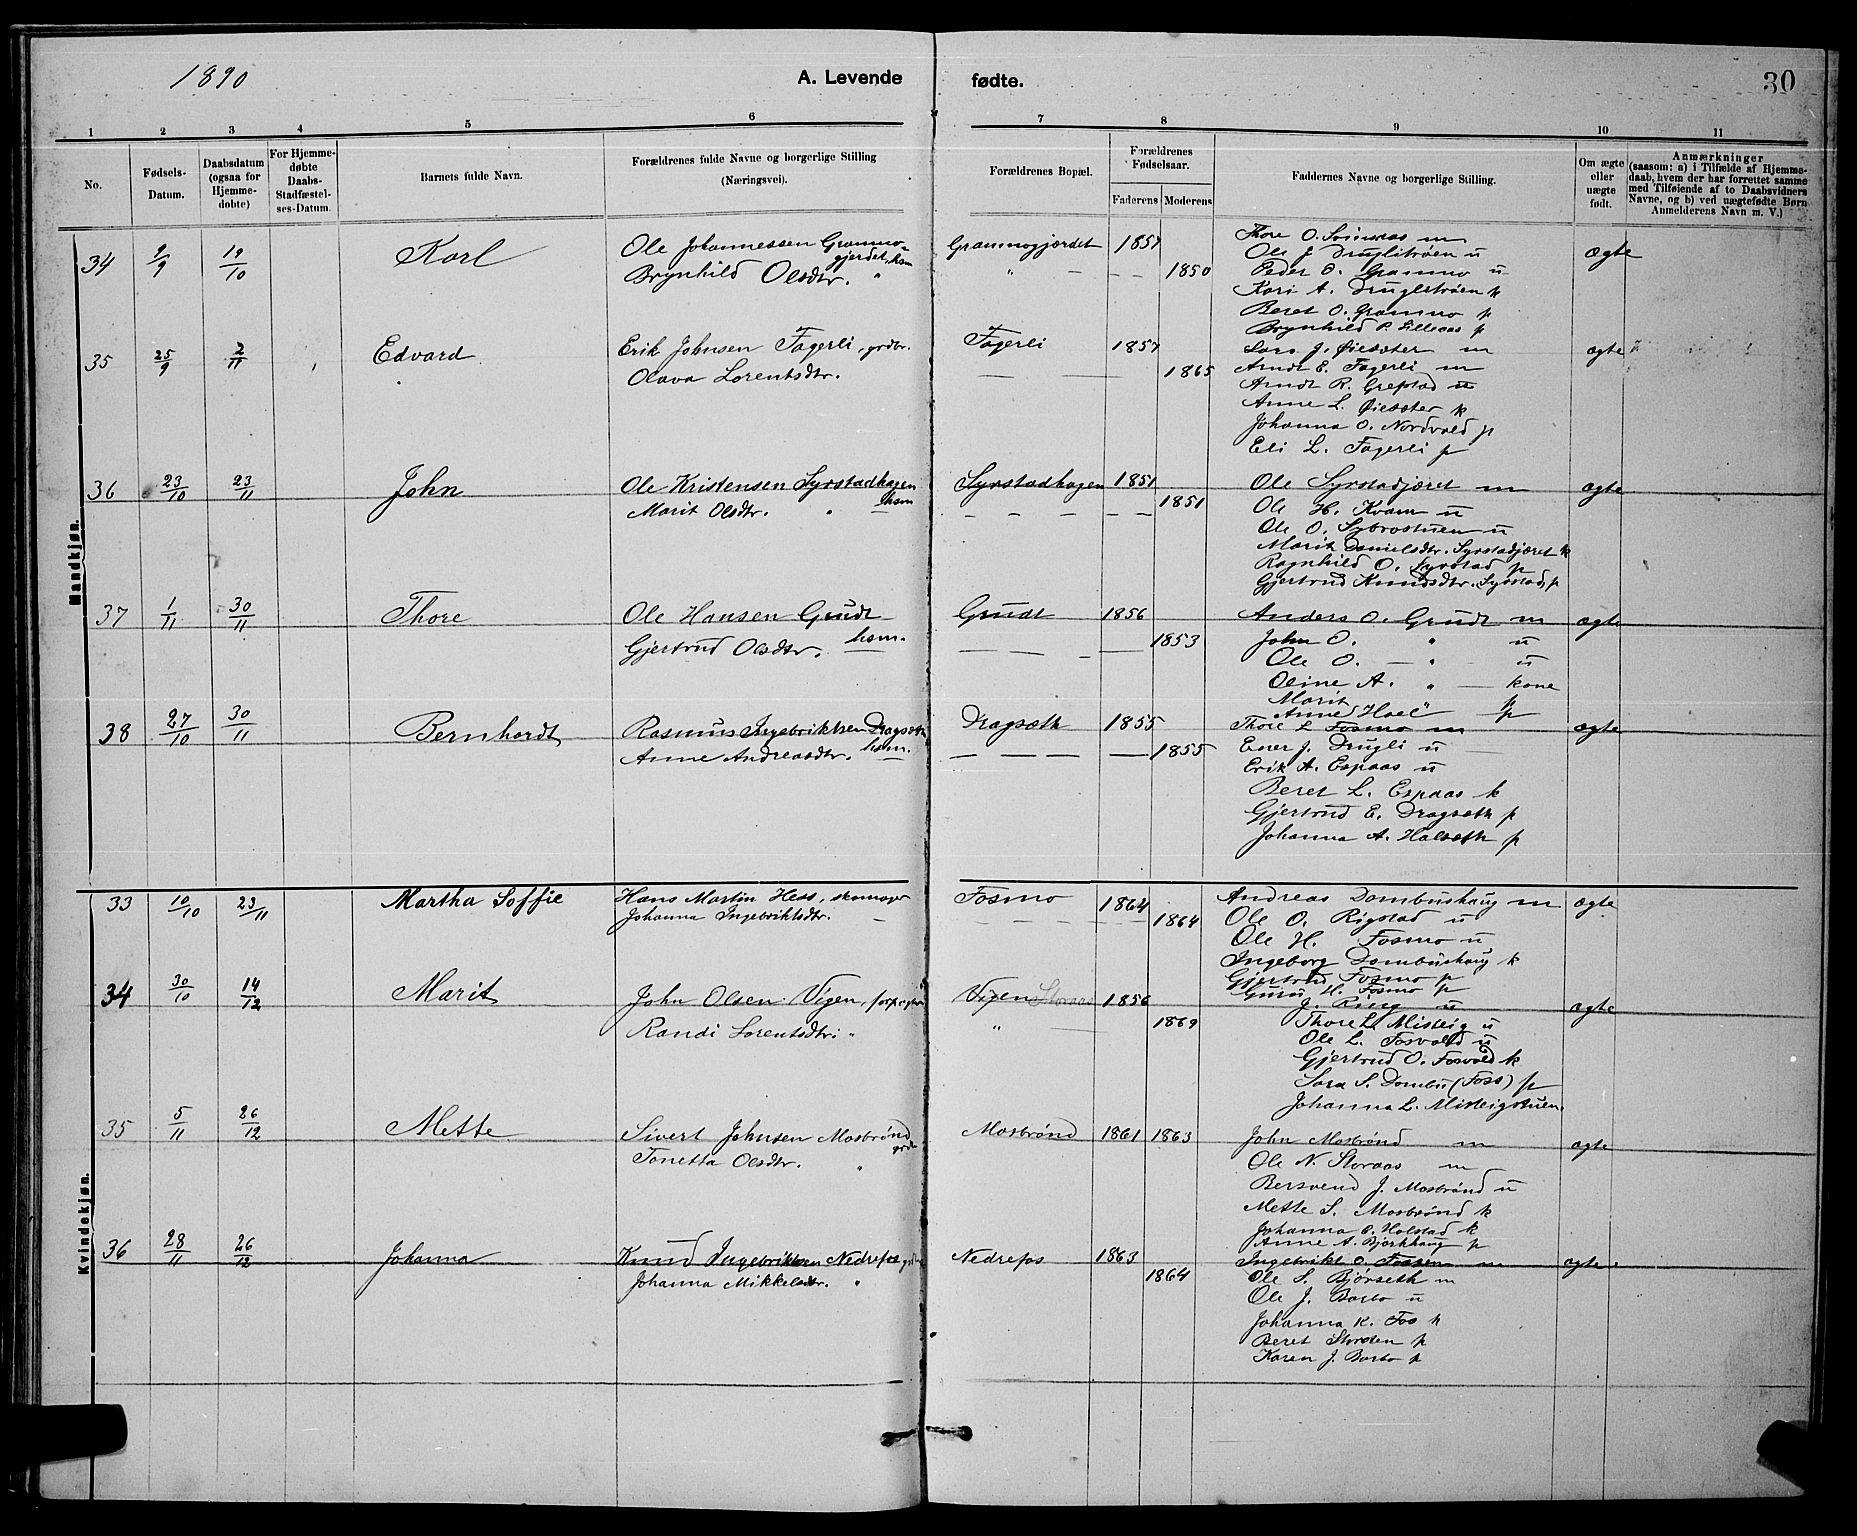 1890 A. Levende fødte. 30
1 2 3 4 5 6 7 8 9 10 11
No. Fødsels-Datum. Daabsdatum (ogsaa for Hjemme-døbte) For Hjemme-døbte Daabs-Stadfæstel-ses-Datum. Barnets fulde Navn. Forældrenes fulde Navne og borgerlige Stilling (Næringsvei). Forældrenes Bopæl. Forældrenes Fødselsaar. Faderens Moderens Faddernes Navne og borgerlige Stilling. Om ægte eller uægte født. Anmærkninger (saasom: a) i Tilfælde af Hjemme-daab, hvem der har forrettet samme med Tilføiende af to Daabsvidners Navne, og b) ved uægtefødte Børn Anmelderens Navn m. V.)
Mandkjøn.
34 9/9 19/10 Karl Ole Johannessen Grammo-gjerdet, hsm Grammogjærdet 1857 Thore O. m ægte
Brynhild Olsdtr. " " 1850 Ole J. Druglitrøen u
Peder O. Grammo u
Kari A. Druglitrøen k
Beret O. Grammo p
Brynhild P. Lilleaas p
35 25/9 2/11 Edvard Erik Johnsen Fagerli, grdbr. Fagerli 1857 Lars J. Øiesæter m ægte
Olava Lorentsdtr. 1865 Arndt E. Fagerli m
Arndt R. Grefstad u
Anne L. Øiesæter k
Johanna O. Nordvald p
Eli L. Fagerli p
36 23/10 23/11 John Ole Kristensen Syrstadhagen Syrstadhagen 1851 Ole Syrstadjæret m ægte
Marit Olsdtr. " hsm 1851 Ole H. Kvam u
Ole O. u
Marit Danielsdtr. Syrstadjæret k
Ragnhild O. Syrstad p
Gjertrud Knudsdtr. Syrstad, p
37 1/11 30/11 Thore Ole Hansen Grudt Grudt 1856 Anders O. Grudt m ægte
Gjertrud Olsdtr. hsm. 1853 John O. " u
Ole O. — " — u
Oline A. " — kone
Marit " p
Anne Hoel p
38 27/10 30/11 Bernhardt Rasmus Ingebriktsen Dragseth Dragseth 1855 Thore L. Fosmo m ægte
Anne Andreasdtr. hsm. 1855 Ener J. Drugli u
Erik A. Espaas u
Beret L. Espaas k
Gjertrud E. Dragseth p
Johanna A. Halseth p
Kvindekjøn.
33 10/10 23/11 Martha Soffie Hans Martin Hess, skomager Fosmo 1864 Andreas Dombushaug m ægte
Johanna Ingebriktsdtr. 1864 Ole O. Rigstad u
Ole H. Fosmo u
Ingeborg Dombushaug k
Gjertrud Fosmo p
Guru H. Fosmo p
34 30/10 14/12 Marit John Olsen Vigen, Vigen Storaas 1856 J. Ring u ægte
Randi Lorentsdtr. " " 1869 Thore L. Misleig u
Ole L. Fosvold u
Gjertrud O. Fosvold k
Sara S. Dombu (Foss) p
Johanna L. Misleigstuen.
35 5/11 26/12 Mette Sivert Johnsen Mosbrønd grdbr Mosbrønd 1861 1863 John Mosbrønd m ægte
Tonetta Olsdtr. " Ole N. Storaas m
Bersvend J. Mosbrønd u
Mette S. Mosbrønd k
Johanna O. Holstad k
Anne A. Bjørkhaug p
36 28/11 26/12 Johanna Knud Ingebriktsen Nedrefos Nedrefos 1863 Ingebrikt O. Fossen m ægte.
Johanna Mikkelsdtr. " 1864 Ole S. Bjørseth m
Ole J. Barbo u
Johanna K. Fos k
Beret p
Karen J. Barbo p